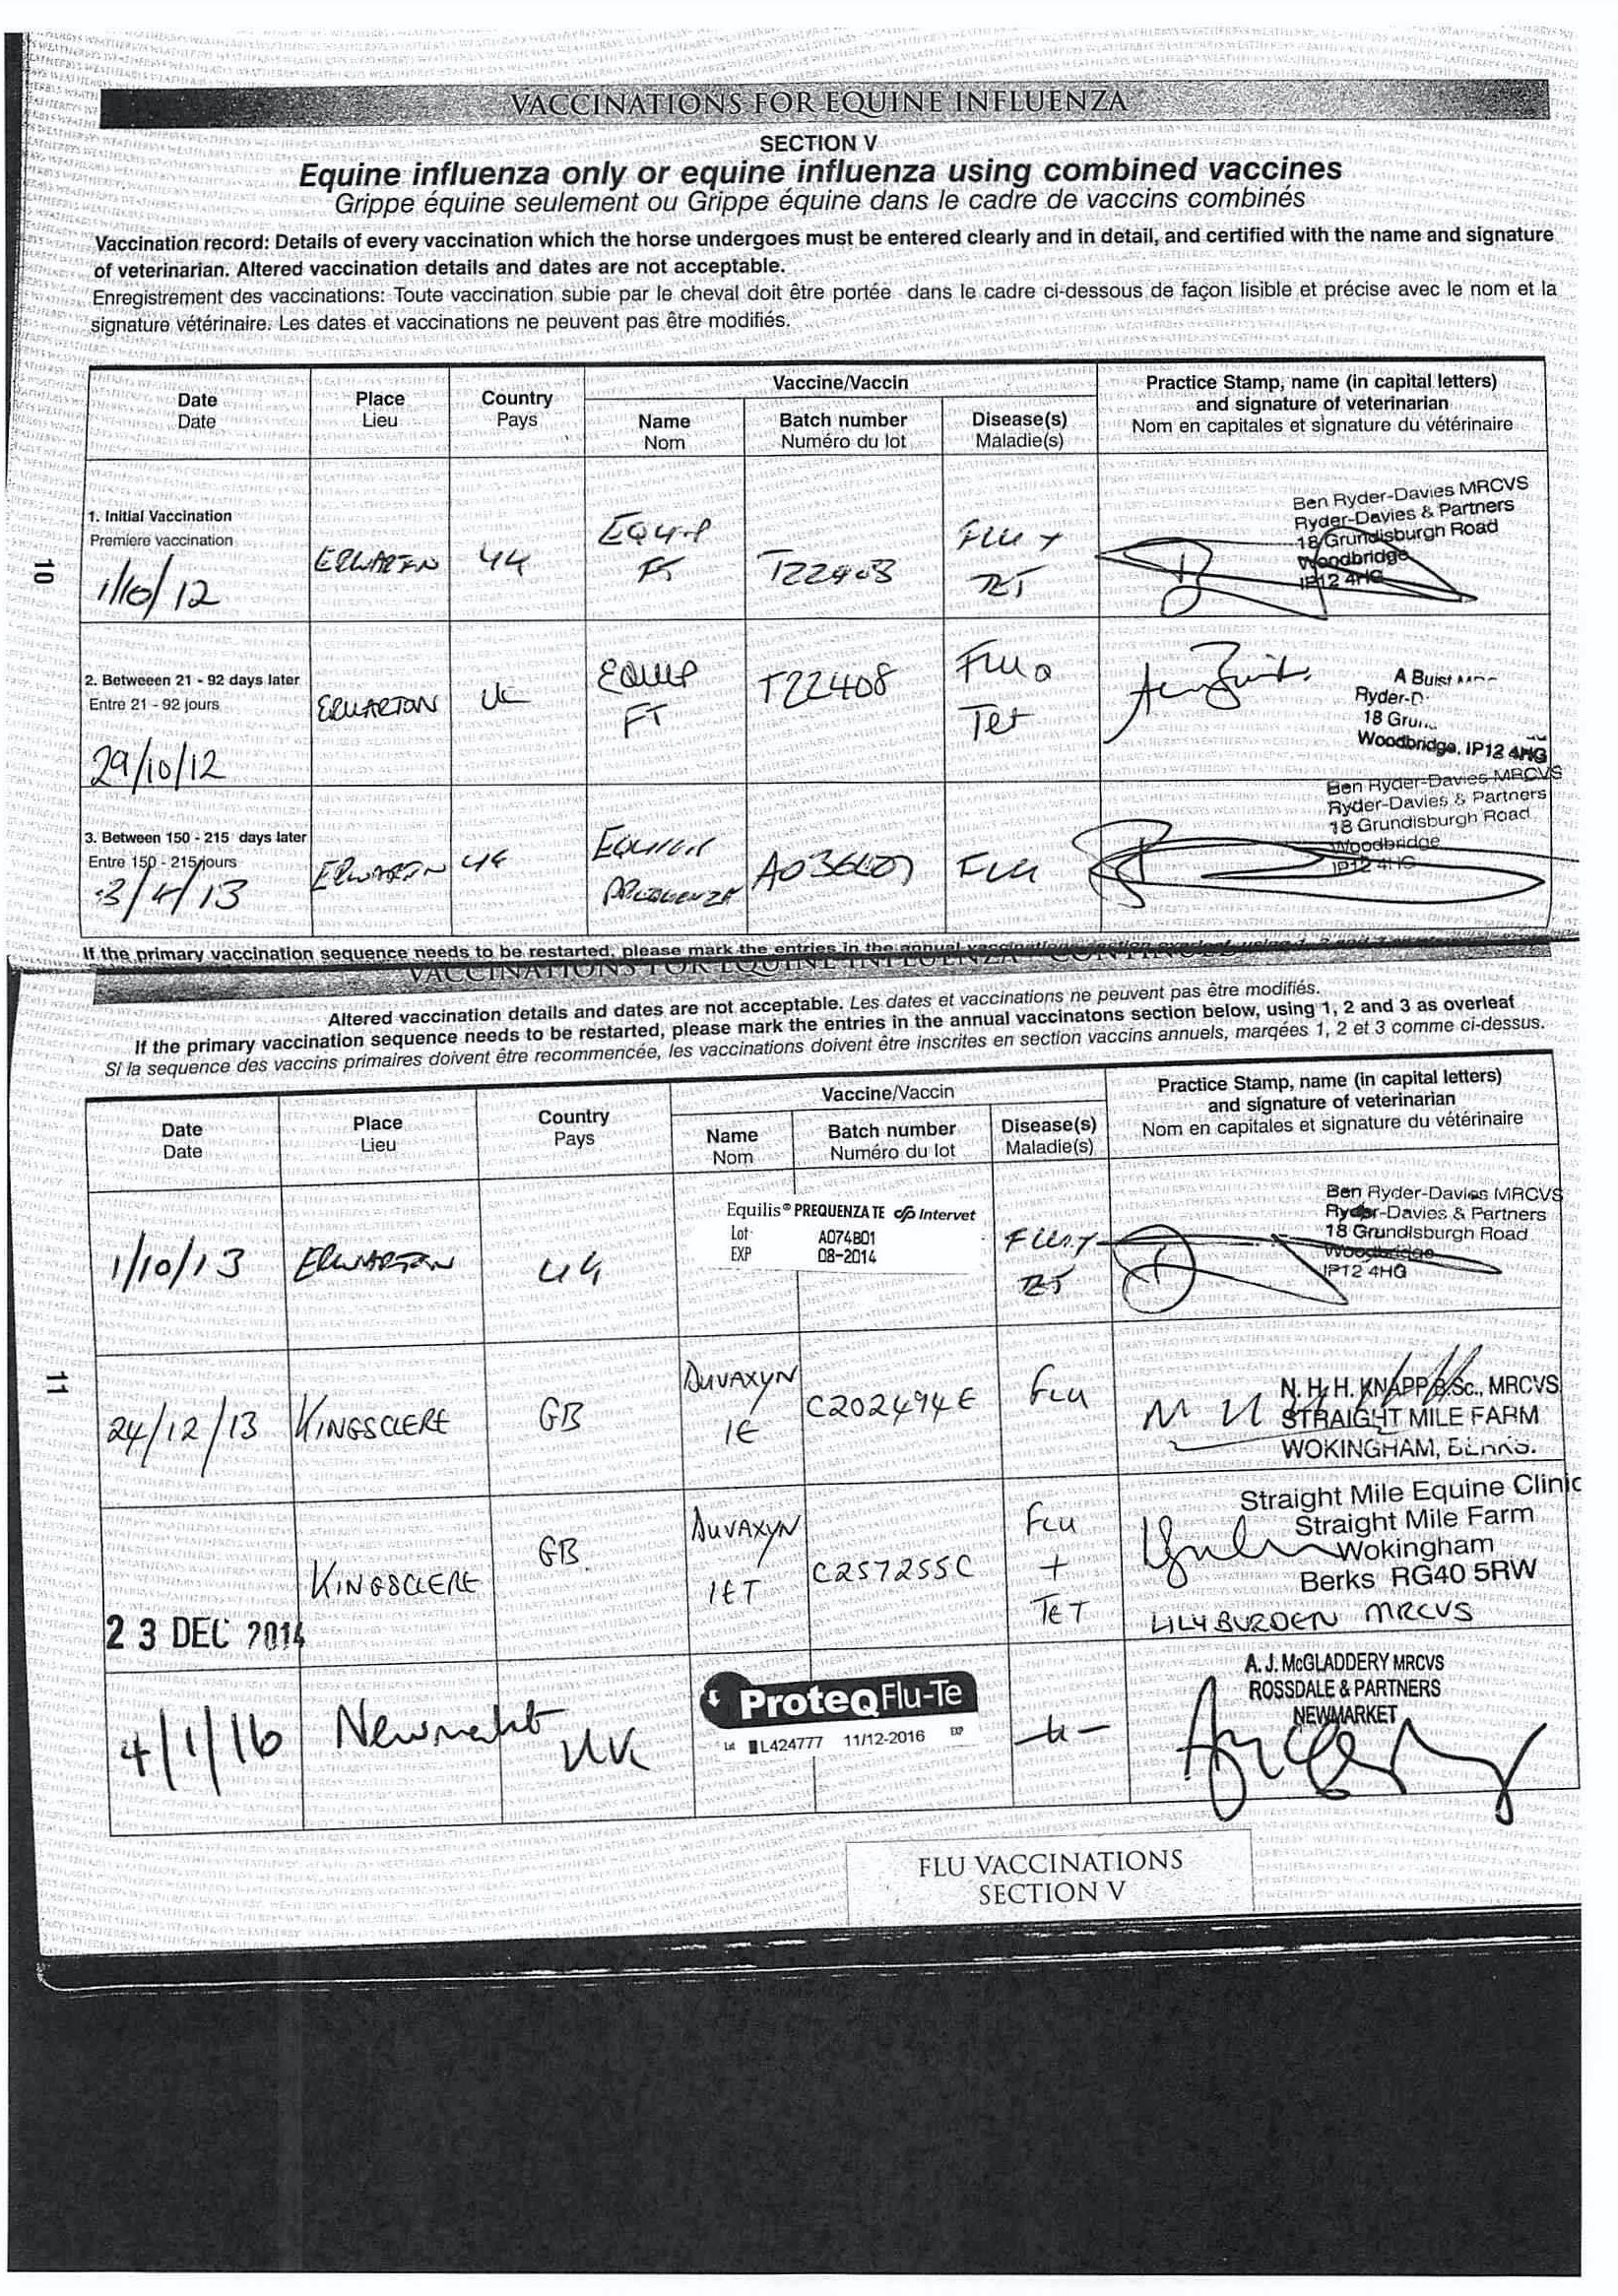 VACCINATIONS FOR EQUINE INFLUENZA
SECTION V
Equine influenza only or equine influenza using combined vaccines
Grippe équine seulement ou Grippe équine dans le cadre de vaccins combinés
Vaccination record: Details of every vaccination which the horse undergoes must be entered clearly and in detail, and certified with the name and signature
of veterinarian. Altered vaccination details and dates are not acceptable.
Enregistrement des vaccinations: Toute vaccination subie par le cheval doit être portée dans le cadre ci-dessous de façon lisible et précise avec le nom et la
signature vétérinaire. Les dates et vaccinations ne peuvent pas être modifiés.
Date
Date
Place
Lieu
Country
Pays
Vaccine/Vaccin
Name
Nom
Batch number
Numéro du lot
Disease(s)
Maladie(s)
Practice Stamp, name (in capital letters)
and signature of veterinarian
Nom en capitales et signature du vétérinaire
1. Initial Vaccination
Premiere vaccination
1/10/12
ERWARTON
UK
EQUIP
FT
T22408
FLU +
TET
Ben Ryder-Davies MRCVS
Ryder-Davies & Partners
18 Grundisburgh Road
Woodbridge
IP12 4HG
10
2. Betweeen 21 - 92 days later
Entre 21 - 92 jours
29/10/12
ERWARTON
UK
EQUIP
FT
T22408
Flu a
Tet
A Buist
Ryder-D
18 Grun
Woodbridge, IP12 4HG
3. Between 150 - 215 days later
Entre 150 - 215 jours
3/4/13
ERWARTON
UK
PREQUENZA
FLU
Ben Ryder-Davies MRCVS
Ryder-Davies & Partners
18 Grundisburgh Road
Woodbridge
IP12 4HG
If the primary vaccination sequence needs to be restarted, please mark the entries in the annual vaccination
VACCINATIONS FOR EQUINE INFLUENZA - CONTINUED
Altered vaccination details and dates are not acceptable. Les dates et vaccinations ne peuvent pas être modifiés.
If the primary vaccination sequence needs to be restarted, please mark the entries in the annual vaccinatons section below, using 1, 2 and 3 as overleaf
Si la sequence des vaccins primaires doivent être recommencée, les vaccinations doivent être inscrites en section vaccins annuels, marqées 1, 2 et 3 comme ci-dessus.
Date
Date
Place
Lieu
Country
Pays
Vaccine/Vaccin
Name
Nom
Batch number
Numéro du lot
Disease(s)
Maladie(s)
Practice Stamp, name (in capital letters)
and signature of veterinarian
Nom en capitales et signature du vétérinaire
1/10/13
ERWARTON
UK
Equilis® PREQUENZA TE Intervet
Lot A074B01
EXP 08-2014
FLU +
TET
Ben Ryder-Davies MRCVS
Ryder-Davies & Partners
18 Grundisburgh Road
Woodbridge
IP12 4HG
11
24/12/13
KINGSCLERE
GB
DUVAXYN
IE
C202494E
FLU
N. H. H. KNAPP B.Sc., MRCVS
STRAIGHT MILE FARM
WOKINGHAM, BERKS.
23 DEC 2014
KINGSCLERE
GB
DUVAXYN
IET
C257255C
FLU
+
TET
Straight Mile Equine Clinic
Straight Mile Farm
Wokingham
Berks RG40 5RW
LILY BURDEN MRCVS
4/1/16
Newmarket
UK
ProteqFlu-Te
Lot L424777 11/12-2016 EXP
-u-
A. J. McGLADDERY MRCVS
ROSSDALE & PARTNERS
NEWMARKET
FLU VACCINATIONS
SECTION V